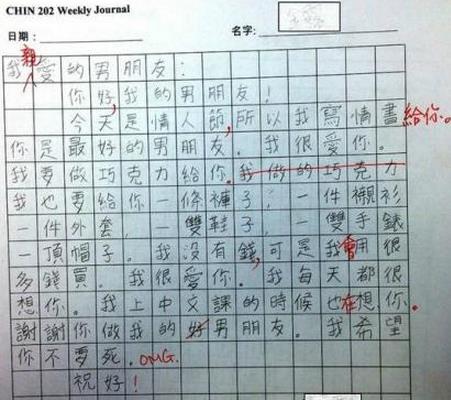 CHIN 202 Weekly Journal
日期：
名字：
我親愛的男朋友：
你好，我的男朋友！
今天是情人節，所以我寫情書給你。
你是最好的男朋友。我很愛你。
我要做巧克力給你。我做的巧克力
我也要給你一條褲子；一件襯衫
一件外套，一雙鞋子，一雙手錶
一頂帽子。我没有錢，可是我會用很
多錢買。我很愛你。我每天都很
想你。我上中文課的時候也在想你。
謝謝你做我的好男朋友。我希望
你不要死。OMG.
祝好！